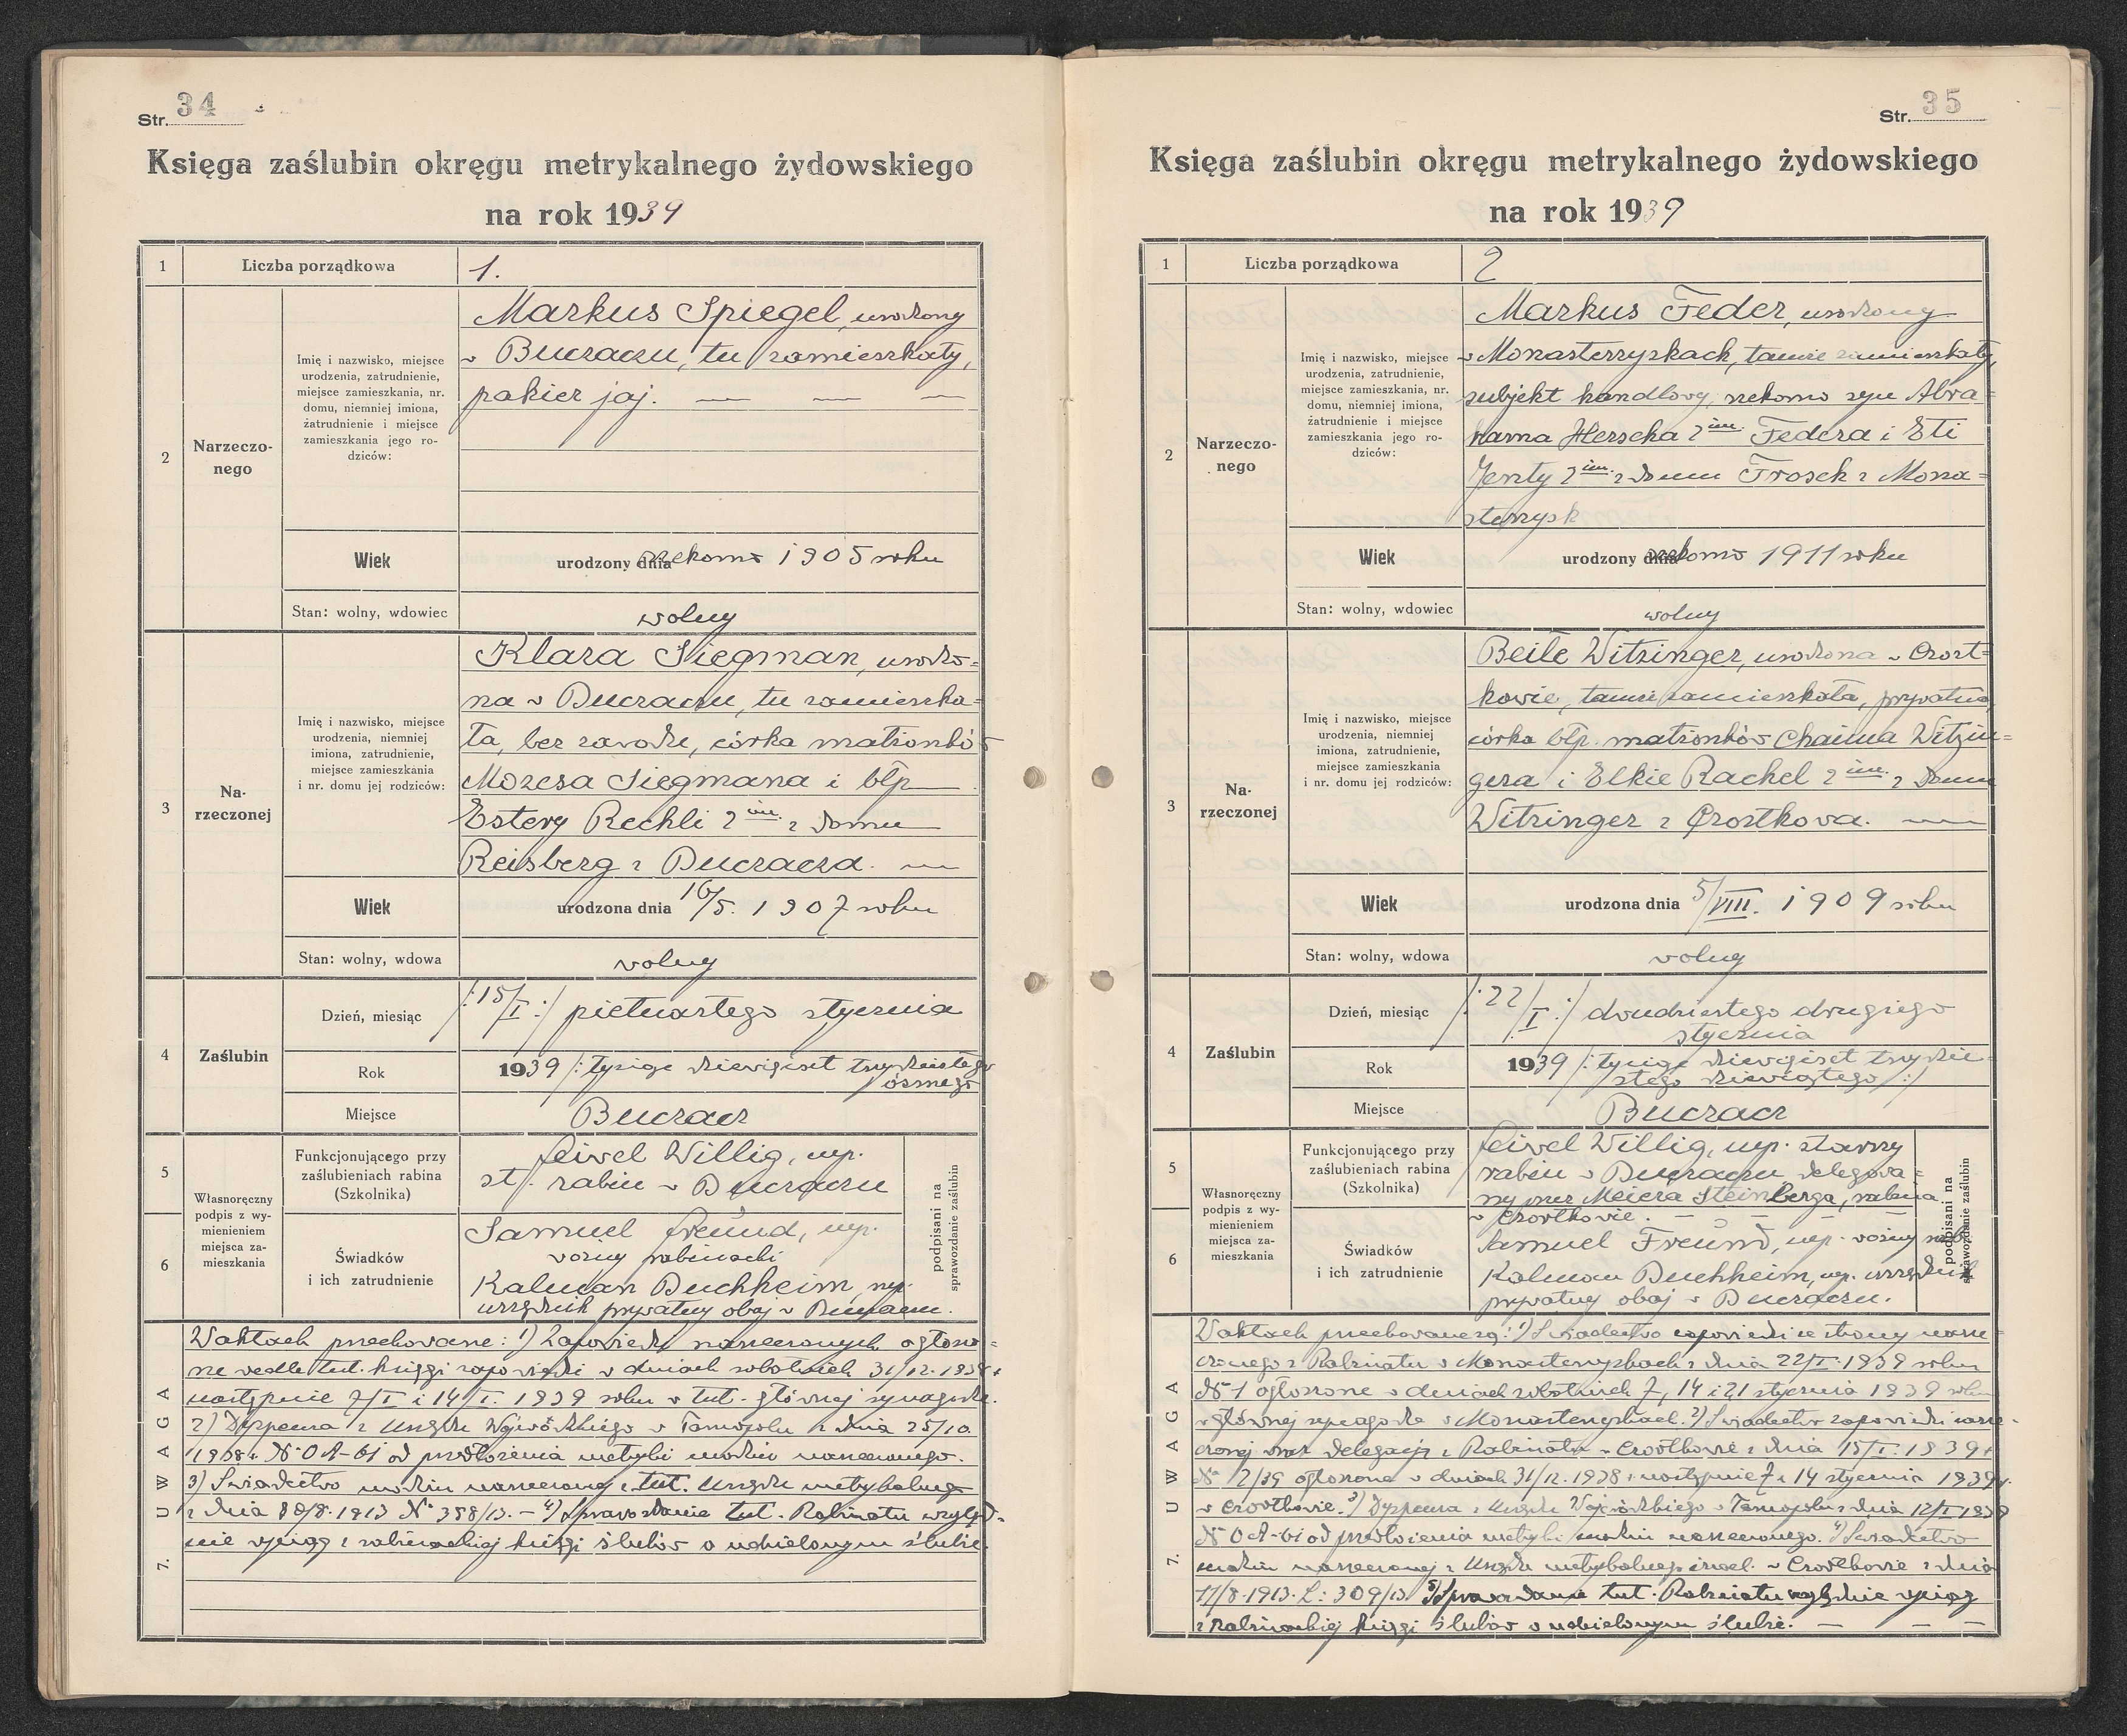 Str. 34
Księga zaślubin okręgu metrykalnego żydowskiego
na rok 1939
1 Liczba porządkowa 1.
2 Narzeczo-
nego
Imię i nazwisko, miejsce
urodzenia, zatrudnienie,
miejsce zamieszkania, nr.
domu, niemniej imiona,
zatrudnienie i miejsce
zamieszkania jego ro-
dziców:
Markus Spiegel, urodzony
w Buczaczu, tu zamieszkały,
pakier jaj. — — —
Wiek urodzony dnia rzekomo 1905 roku
Stan: wolny, wdowiec wolny
3 Na-
rzeczonej
Imię i nazwisko, miejsce
urodzenia, niemniej
imiona, zatrudnienie,
miejsce zamieszkania
i nr. domu jej rodziców:
Klara Siegman, urodzo=
na w Buczaczu, tu zamieszka=
ła, bez zawodu, córka małżonków
Mozesa Siegmana i błp
Estery Rechli 2 im. z domu
Reisberg z Buczacza. —
Wiek urodzona dnia 16/5. 1907 roku
Stan: wolny, wdowa wolny
4 Zaślubin
Dzień, miesiąc /:15/I:/ piętnastego stycznia
Rok 1939 /: tysiąc dziewięćset trzydziestego
ósmego
Miejsce Buczacz
5
6
Własnoręczny
podpis z wy-
mienieniem
miejsca za-
mieszkania
Funkcjonującego przy
zaślubieniach rabina
(Szkolnika)
Feivel Willig, mp.
st. rabin w Buczaczu
Świadków
i ich zatrudnienie
Samuel Freund, mp.
woźny rabinacki
Kalman Buchheim, mp.
urzędnik prywatny obaj w Buczaczu.
podpisani na
sprawozdanie zaślubin
7. UWAGA
W aktach przechowane: 1) Zapowiedzi narzeczonych ogłoszo=
ne wedle tut. księgi zapowiedzi w dniach sobotnich 31/12. 1938 r
następnie 7/I i 14/I. 1939 roku w tut. głównej synagodze.
2) Dyspensa z Urzędu Wojewódzkiego w Tarnopolu z dnia 25/10.
1938 r. No OA-61 od przedłożenia metryki urodzin narzeczonego.
3) Świadectwo urodzin narzeczonej z tut. Urzędu metrykalnego
z dnia 1913 No 358/13. — 4) Sprawozdanie tut. Rabinatu względ=
nie wyciąg z rabinackiej księgi ślubów o udzielonym ślubie.
Str. 35
Księga zaślubin okręgu metrykalnego żydowskiego
na rok 1939
1 Liczba porządkowa 2
2 Narzeczo-
nego
Imię i nazwisko, miejsce
urodzenia, zatrudnienie,
miejsce zamieszkania, nr.
domu, niemniej imiona,
zatrudnienie i miejsce
zamieszkania jego ro-
dziców:
Markus Feder, urodzony
w Monasterzyskach, tamże zamieszkały,
subjekt handlowy, rzekomo syn Abra=
hama Herscha 2 im. Federa i Eti
Jenty 2 im. z domu Frosch z Mona=
sterzysk
Wiek urodzony dnia rzekomo 1911 roku
Stan: wolny, wdowiec wolny
3 Na-
rzeczonej
Imię i nazwisko, miejsce
urodzenia, niemniej
imiona, zatrudnienie,
miejsce zamieszkania
i nr. domu jej rodziców:
Beile Witzinger, urodzona w Czort=
kowie, tamże zamieszkała, prywatna,
córka błp. małżonków Chaima Witzin=
gera i Elkie Rachel 2 im. z domu
Witzinger z Czortkowa. —
Wiek urodzona dnia 5/VIII. 1909 roku
Stan: wolny, wdowa wolny
4 Zaślubin
Dzień, miesiąc /:22/I:/ dwudziestego drugiego
stycznia
Rok 1939 /: tysiąc dziewięćset trzydzie=
stego dziewiątego :/
Miejsce Buczacz
5
6
Własnoręczny
podpis z wy-
mienieniem
miejsca za-
mieszkania
Funkcjonującego przy
zaślubieniach rabina
(Szkolnika)
Feivel Willig, mp. starszy
rabin w Buczaczu delegowa=
ny przez Meiera Steinberga, rabina
w Czortkowie. — — — —
Świadków
i ich zatrudnienie
Samuel Freund, mp. woźny rab.
Kalman Buchheim, mp. urzędnik
prywatny obaj w Buczaczu.
podpisani na
sprawozdanie zaślubin
7. UWAGA
W aktach przechowane są: 1) Świadectwo zapowiedzi ze strony narze=
czonego z Rabinatu w Monasterzyskach z dnia 22/I. 1939 roku
No 1 ogłoszone w dniach sobotnich 7, 14 i 21 stycznia 1939 roku
w głównej synagodze w Monasterzyskach. 2) Świadectwo zapowiedzi narze=
czonej oraz delegacja z Rabinatu w Czortkowie z dnia 15/I. 1939 r
No 2/39 ogłoszona w dniach 31/12. 1938 r następnie 7 i 14 stycznia 1939 r.
w Czortkowie. 3) Dyspensa z Urzędu Wojewódzkiego w Tarnopolu z dnia 12/I 1939
No OA-61 od przedłożenia metryki urodzin narzeczonego. 4) Świadectwo
urodzin narzeczonej z Urzędu metrykalnego izrael. w Czortkowie z dnia
17/8. 1913. L: 309/13 5) Sprawozdanie tut. Rabinatu względnie wyciąg
z rabinackiej księgi ślubów o udzielonym ślubie. — — —